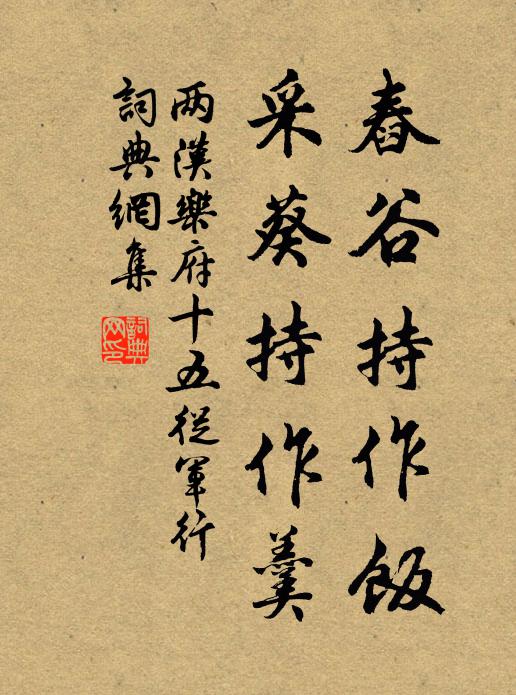 舂谷持作飯
采葵持作羹
两漢樂府十五從軍行
詞典網集
詞典网印